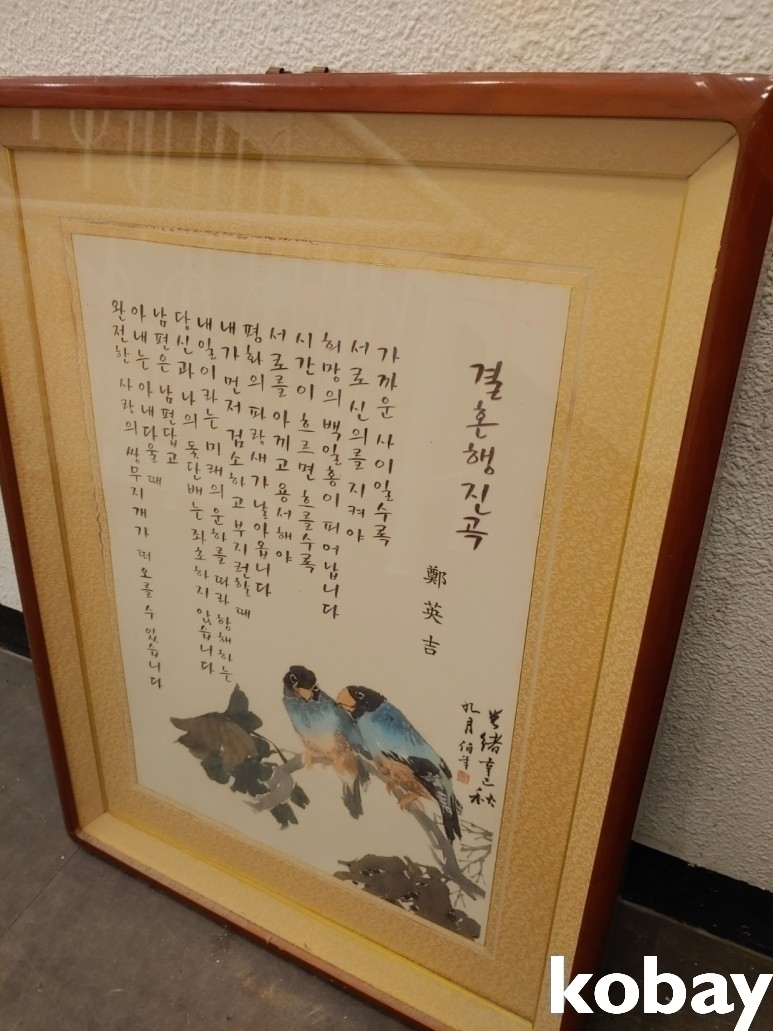 결혼행진곡
鄭英吉
가까운 사이일수록
서로 신의를 지켜야
희망의 백일홍이 피어납니다
시간이 흐르면 흐를수록
서로를 아끼고 용서해야
평화의 파랑새가 날아옵니다
내가 먼저 검소하고 부지런할 때
내일이라는 미래의 운하를 따라 항해하는
당신과 나의 돛단배는 좌초하지 않습니다
남편은 남편답고
아내는 아내다울 때
완전한 사랑의 쌍무지개가 떠오를 수 있습니다
緖 秋
月
kobay